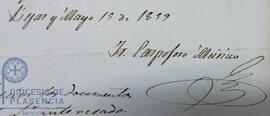 Bejar y Mayo 15 de 1859
Fr. Carpoforo
DIOCESIS DE
PLASENCIA
documentos
interesado.